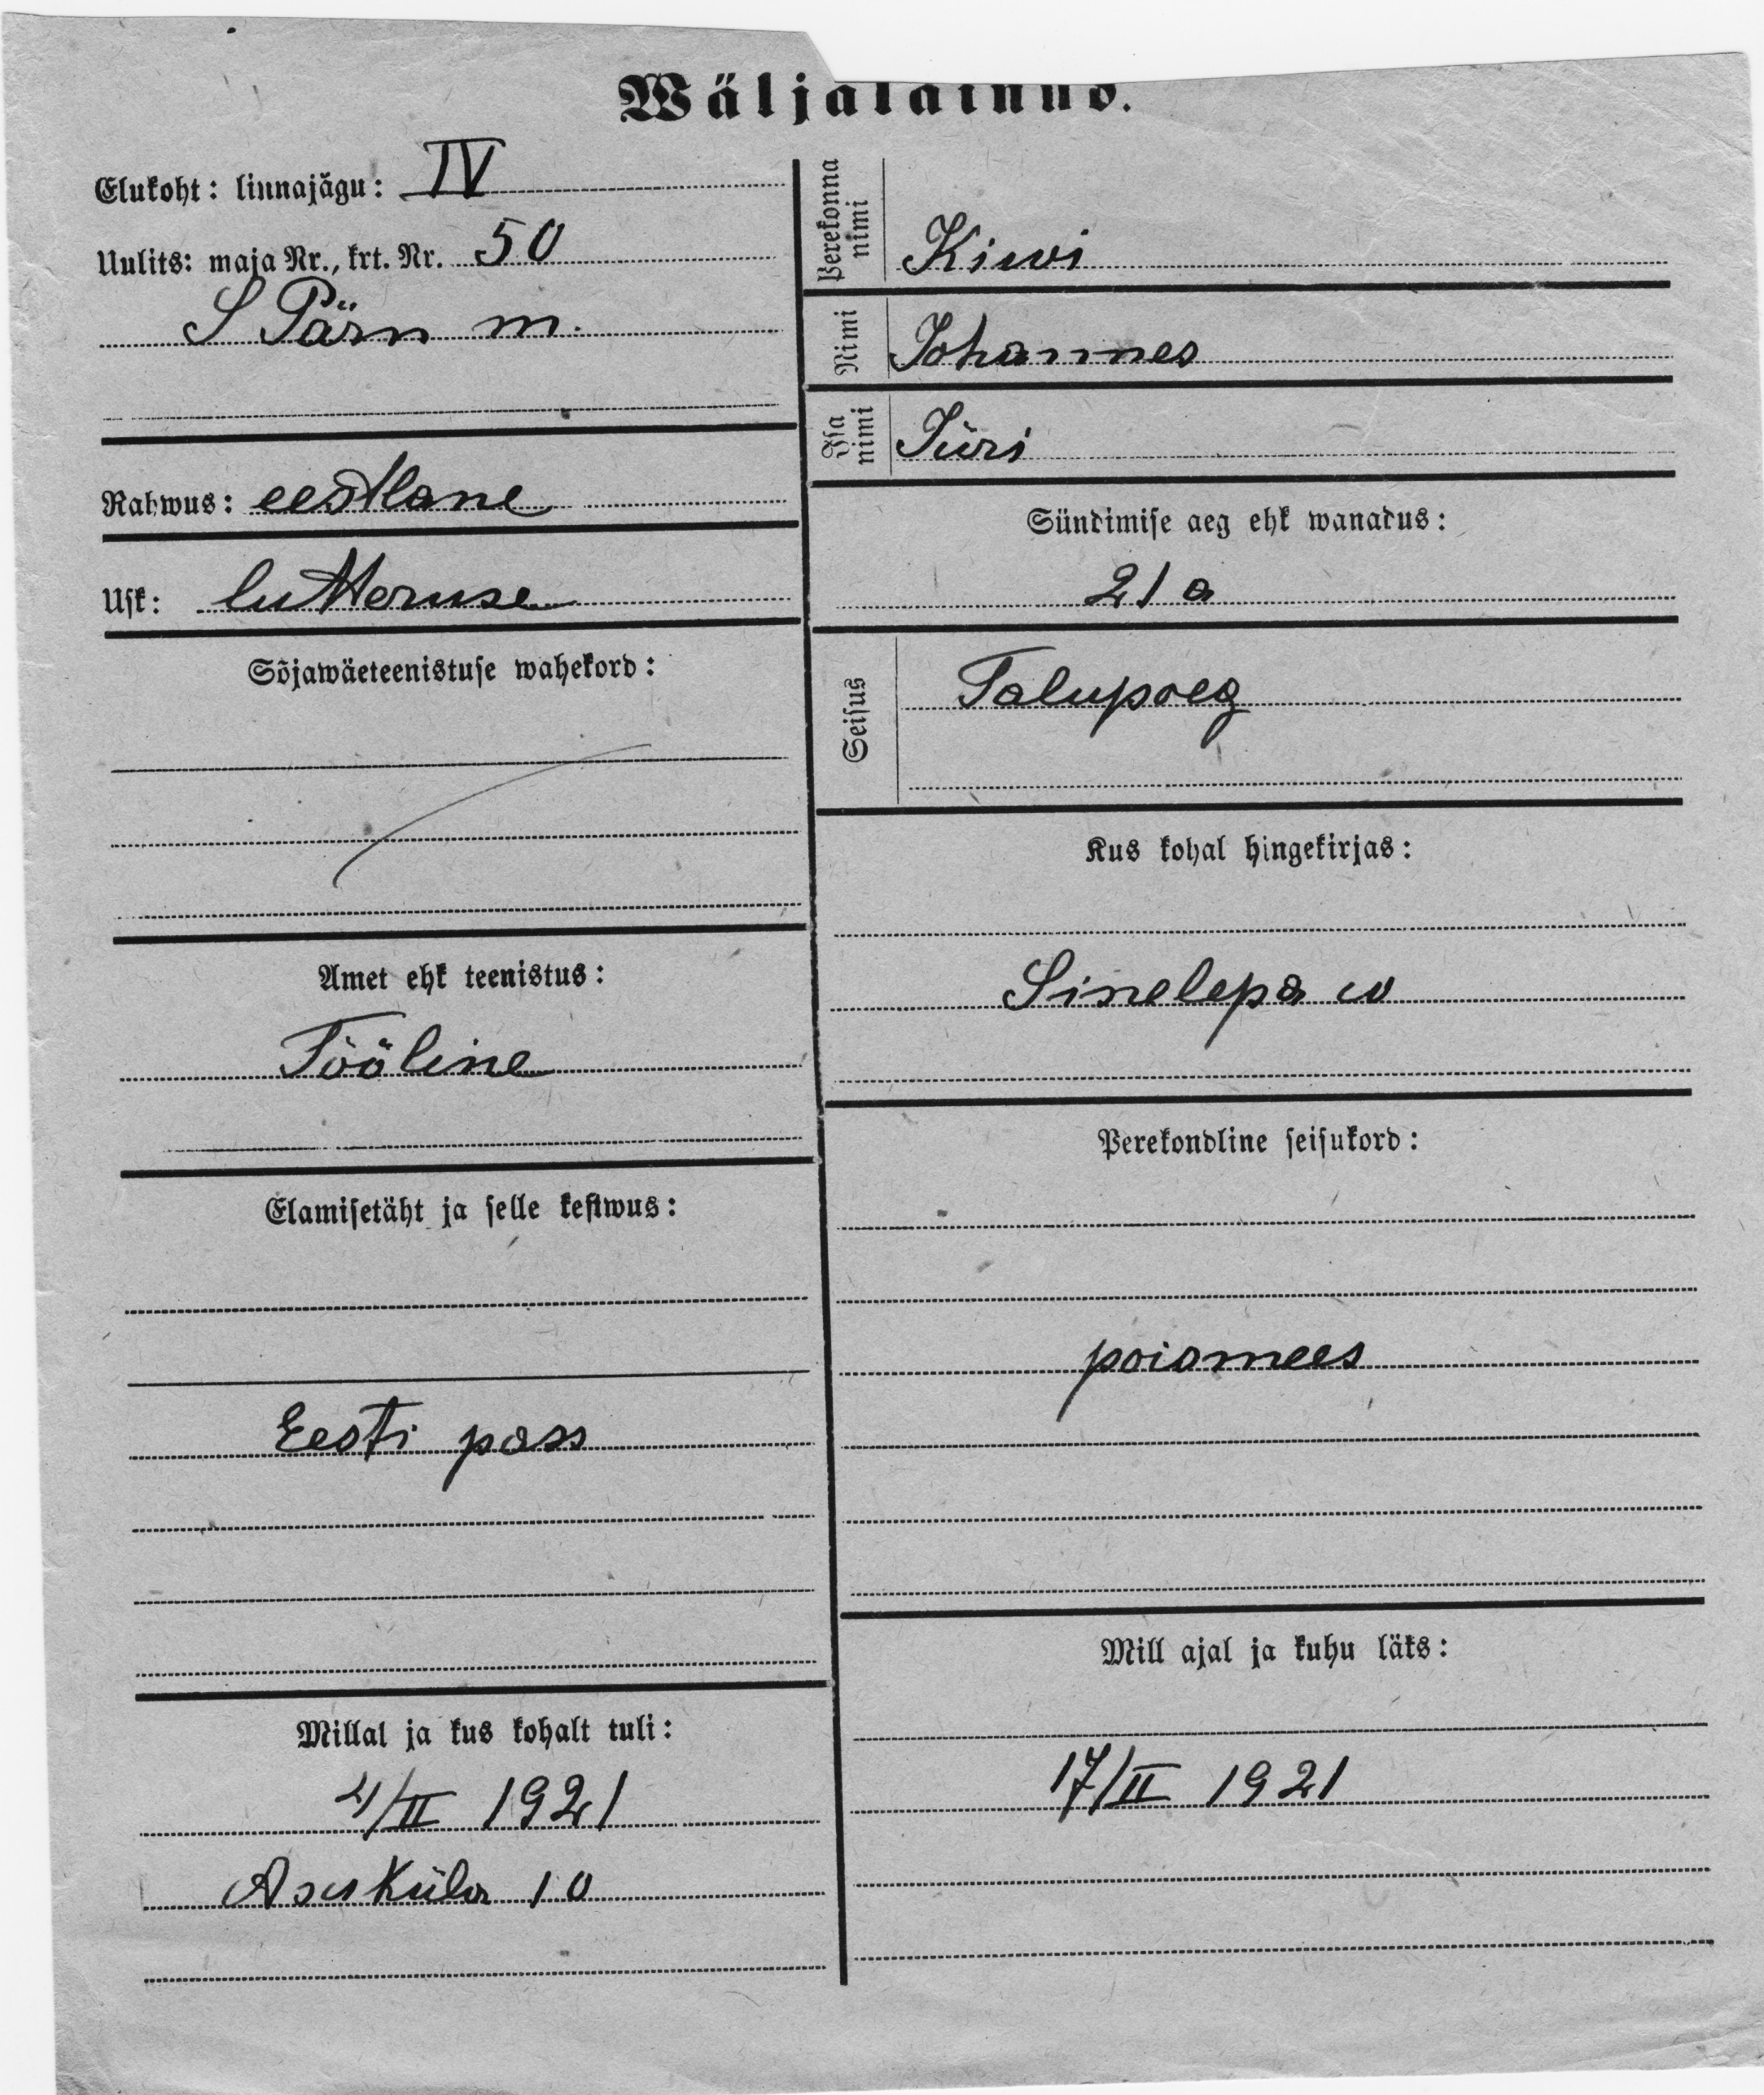 Wäljaläinud.
Elukoht: linnajägu: IV
Uulits: maja Nr., krt. Nr. 50
S Pärn m.
Rahwus: eestlane
Usk: lutteruse
Sõjawäeteenistuse wahekord:
Amet ehk teenistus:
Tööline
Elamisetäht ja selle kestwus:
Eesti pass
Millal ja kus kohalt tuli:
4/II 1921
Asuküla 10
Perekonna nimi Kiwi
Nimi Johannes
Isa nimi Jüri
Sündimise aeg ehk wanadus:
21 a
Seisus Talupoeg
Kus kohal hingekirjas:
Sinelepa w
Perekondline seisukord:
poismees
Mill ajal ja kuhu läks:
17/II 1921